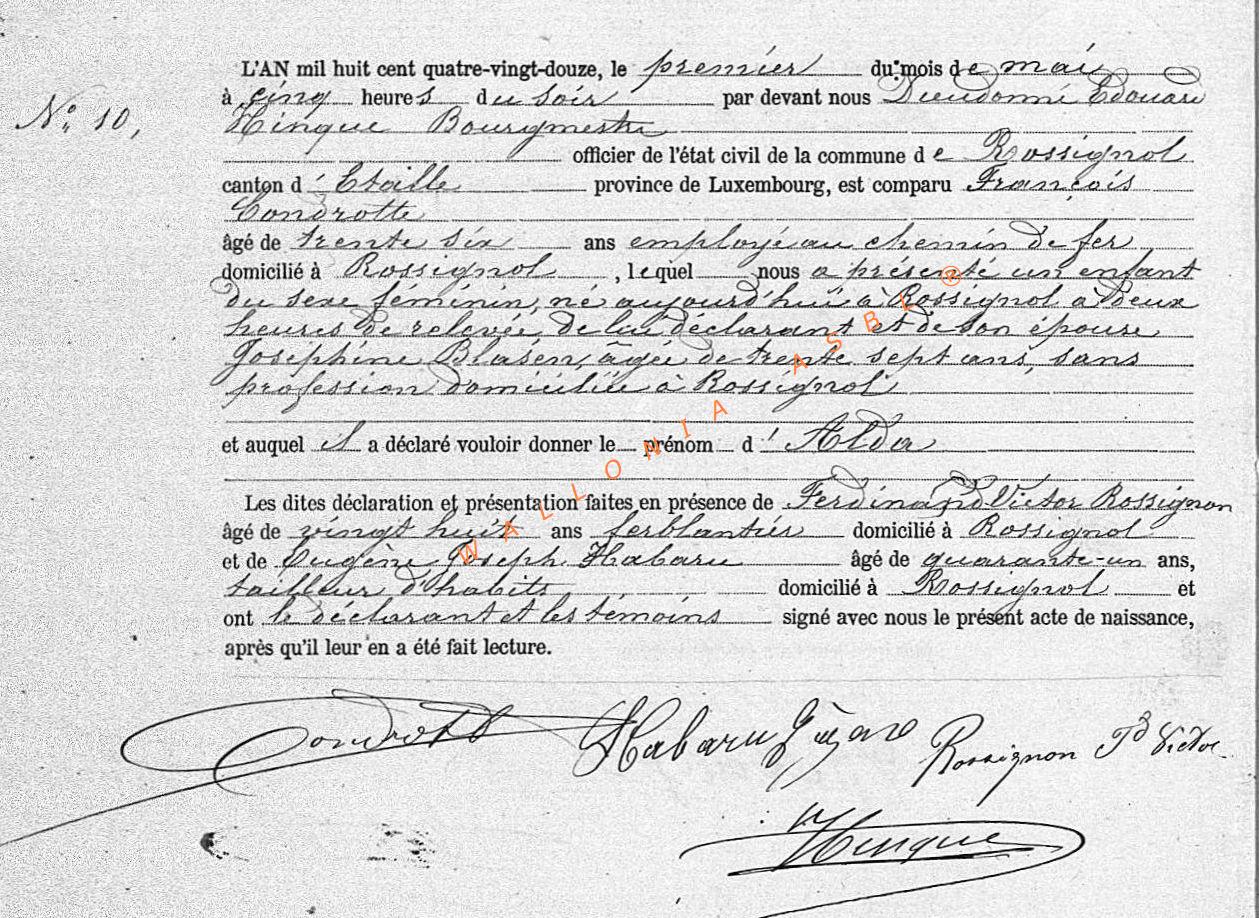 L'AN mil huit cent quatre-vingt-douze, le premier du mois de mai
N° 10,
à cinq heures du soir par devant nous Dieudonné Edouard
Hinque Bourgmestre
officier de l'état civil de la commune de Rossignol
canton d'Etalle province de Luxembourg, est comparu François
Condrotte
âgé de trente six ans employé au chemin de fer
domicilié à Rossignol, lequel nous a présenté un enfant
du sexe féminin, né aujourd'hui à Rossignol à deux
heures de relevée, de lui déclarant et de son épouse
Joséphine Blasen, âgée de trente sept ans, sans
profession domiciliée à Rossignol
et auquel il a déclaré vouloir donner le prénom d'Alda
Les dites déclaration et présentation faites en présence de Ferdinand Victor Rossignon
âgé de vingt huit ans ferblantier domicilié à Rossignol
et de Eugène Joseph Habaru âgé de quarante-un ans,
tailleur d'habits domicilié à Rossignol et
ont le déclarant et les témoins signé avec nous le présent acte de naissance,
après qu'il leur en a été fait lecture.
Condrott Habaru Rossignon Fd Victor
Hinque
WALLONIA ASBL ®